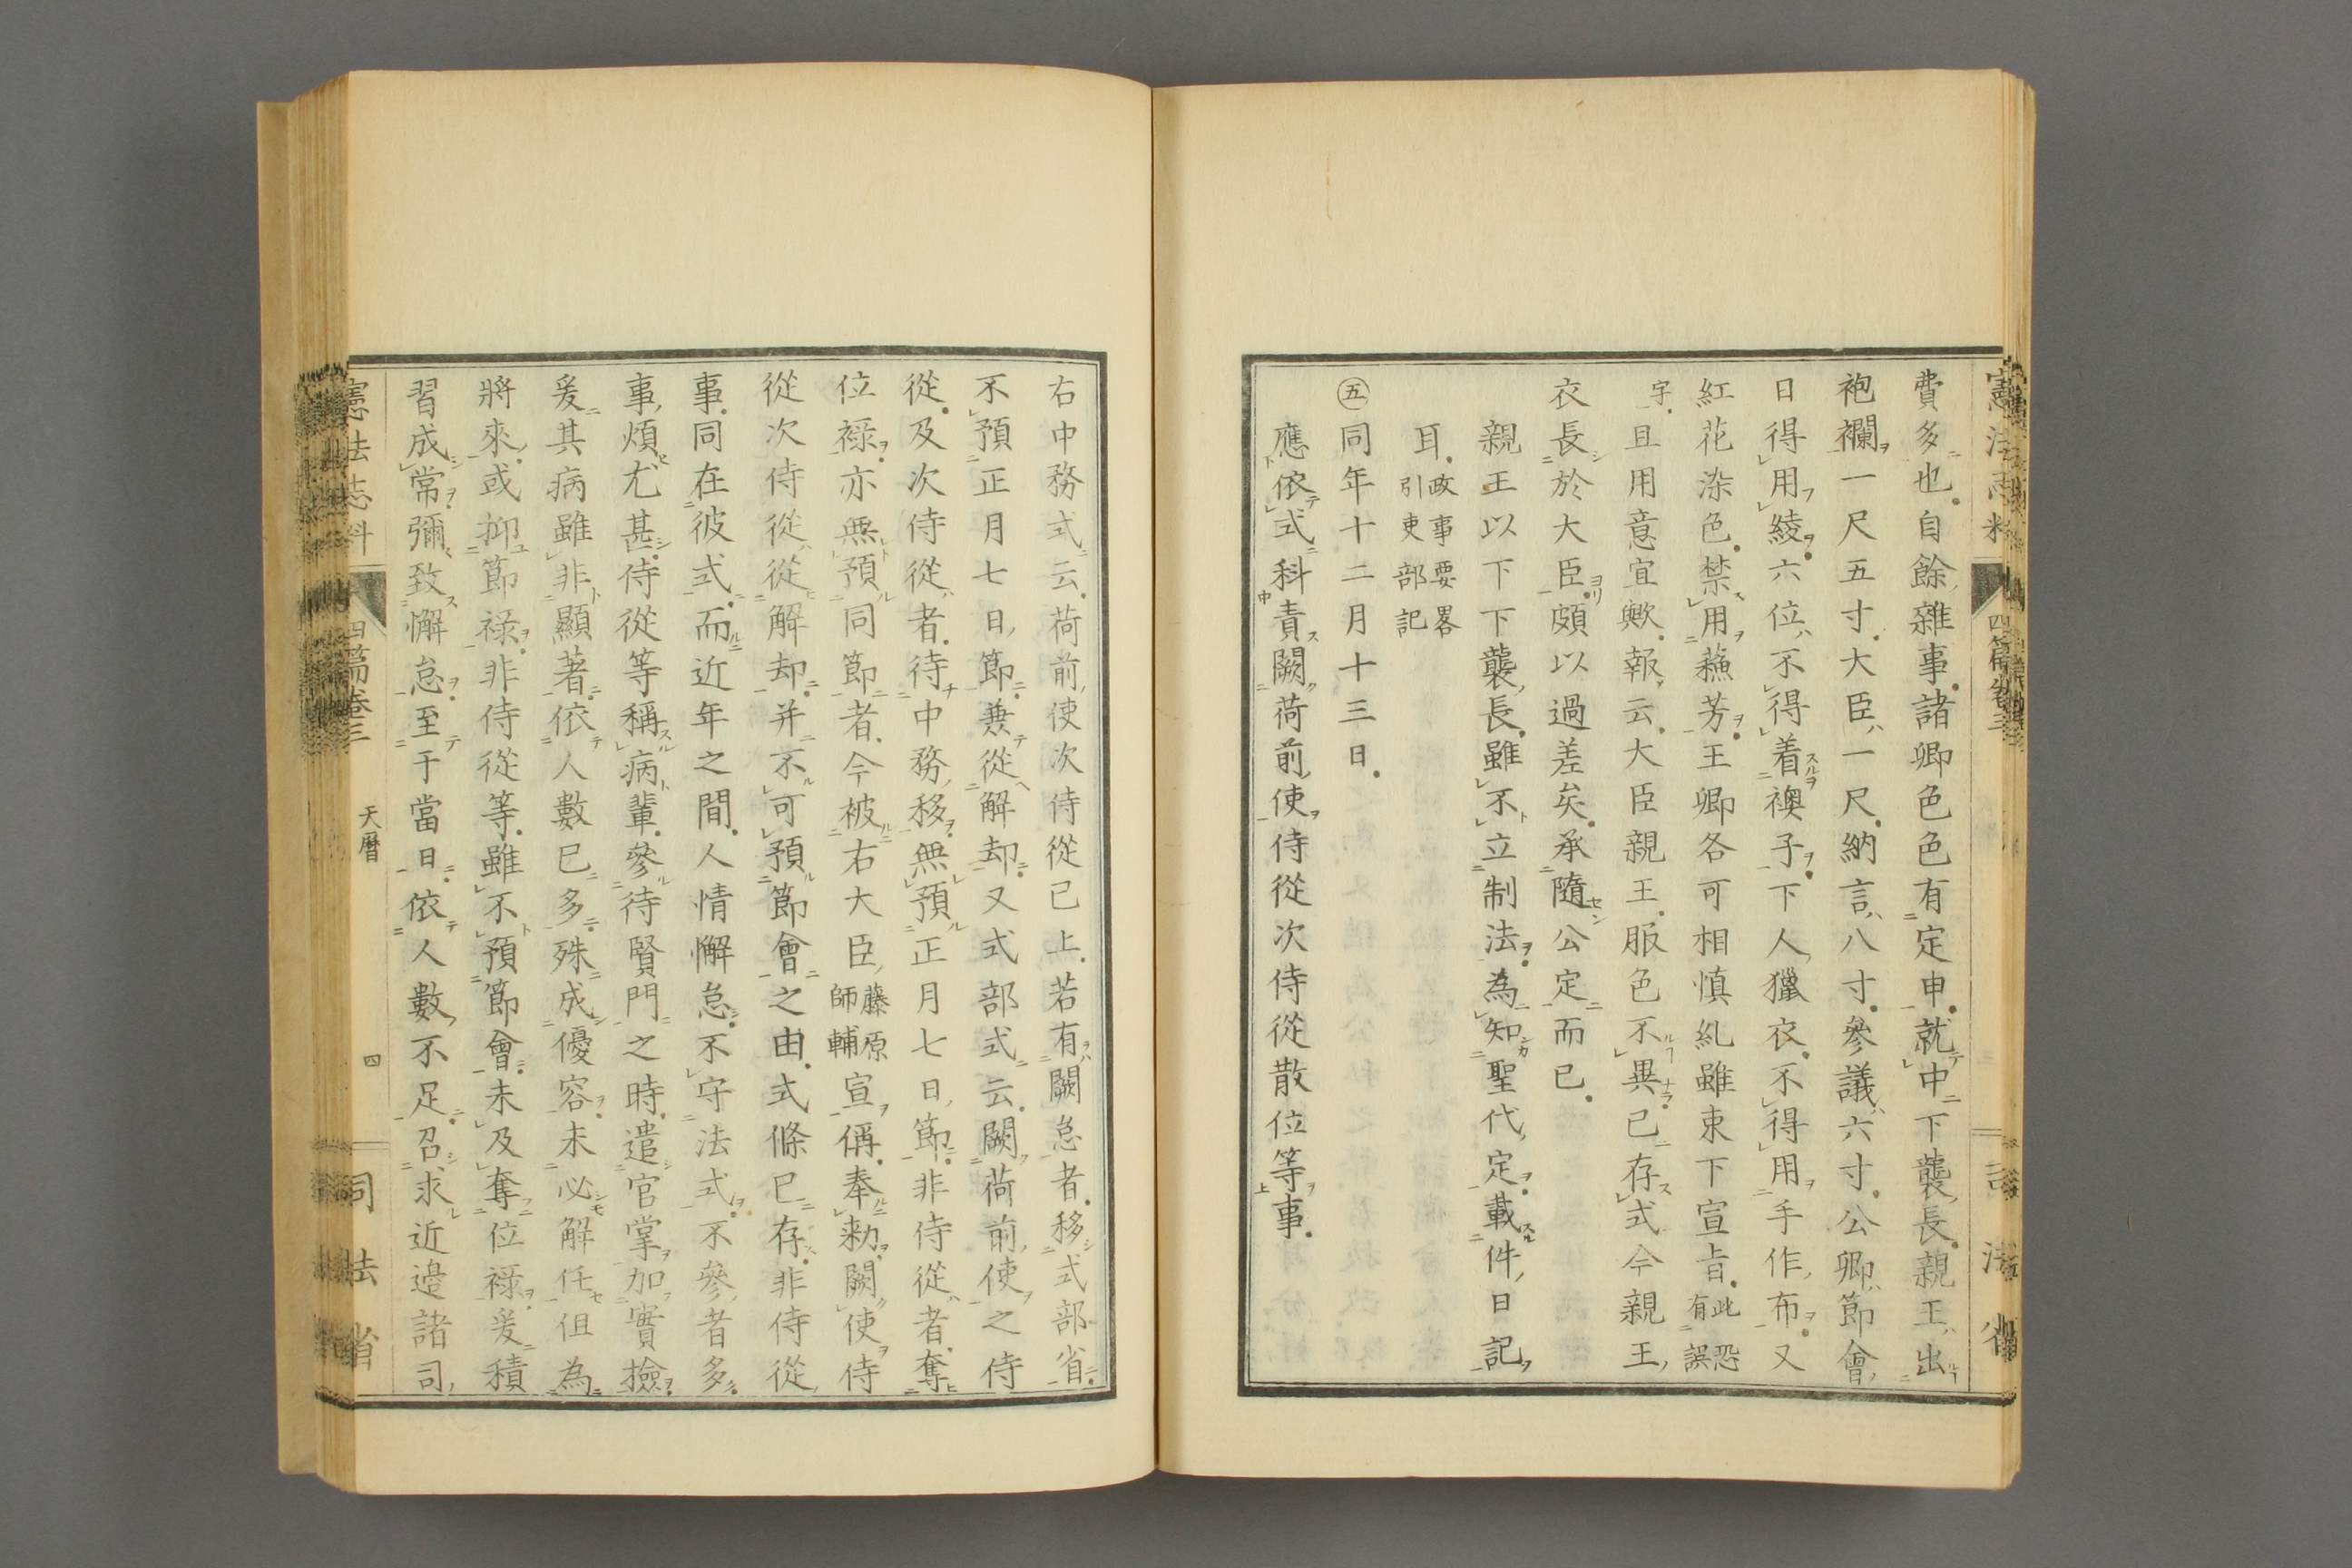 費多也。自餘雜事。諸卿色色有定申。就中下襲長。親王出
袍襴一尺五寸。大臣一尺。納言八寸。參議六寸。公卿節會
日得用綾。六位不得着襖子。下人獵衣。不得用手作布。又
紅花染色。禁用蘓芳。王卿各可相慎糺雖東下宣旨。此恐有誤
字。且用意宜歟。報云。大臣親王。服色不異。已存式今親王
衣長於大臣。頗以過差矣。承隨公定而已。
親王以下下襲長。雖不立制法。為知聖代定。載件日記
耳。政事要畧引吏部記
㊄同年十二月十三日。
應依式科責闕荷前使侍從次侍從散位等事。
右中務式云。荷前使次侍從已上。若有闕怠者。移式部省。
不預正月七日節。兼從解却。又式部式云。闕荷前使之侍
從。及次侍從者。待中務移。無預正月七日節。非侍從者。奪
位祿。亦無預同節者。今被右大臣藤原師輔宣偁。奉勑。闕使侍
從次侍從從解却。并不可預節會之由。式條已存。非侍從
事。同在彼式。而近年之間。人情懈怠。不守法式。不參者多。
事煩尤甚。侍從等稱病輩。參待賢門之時。遣官掌加實撿。
爰其病雖非顯著。依人數已多。殊成優容。未必解任。但為
將來。或抑節祿。非侍從等。雖不預節會。未及奪位祿。爰積
習成常。彌致懈怠。至于當日。依人數不足。召求近邊諸司
憲法志料
四篇卷三
天曆
四
司法省